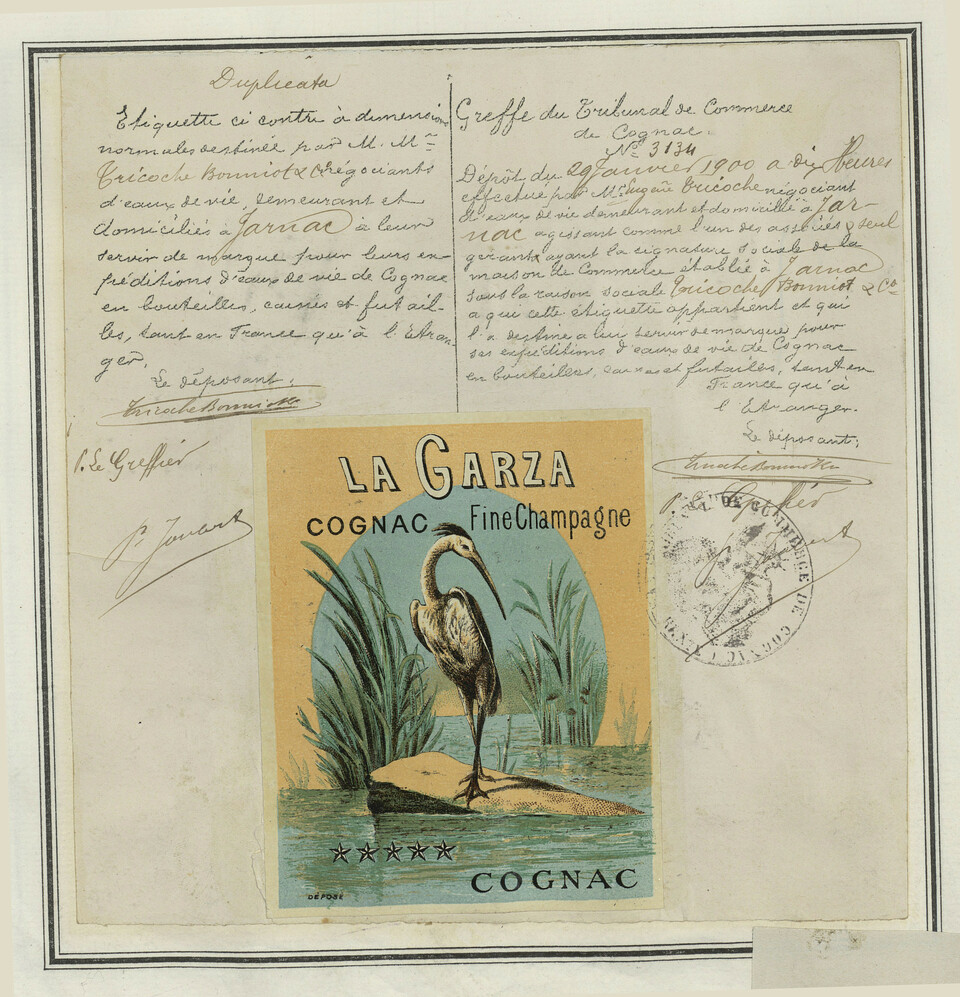 Duplicata
Etiquette ci contre à dimensions
normales destinée par M. Mrs
Tricoche Bonniot & Cie négociants
d'eaux de vie, demeurant et
domiciliés à Jarnac à leur
servir de marque pour leurs ex-
péditions d'eaux de vie de Cognac
en bouteilles, caisses et futail-
les, tant en France qu'à l'Etran-
ger.
Le déposant:
Tricoche Bonniot & Cie
P. Le Greffier
Greffe du Tribunal de Commerce
de Cognac.
No 3134
Dépôt du 29 Janvier 1900 a dix Heures
effectué par Mr Eugène Tricoche négociant
d'eaux de vie demeurant et domicilié à Jar-
nac agissant comme l'un des associés & seul
gérant ayant la signature sociale de la
maison de Commerce établie à Jarnac
sous la raison sociale Tricoche Bonniot & Co
a qui cette etiquette appartient et qui
l'a destine a lui servir de marque pour
ses expéditions d'eaux de vie de Cognac
en bouteilles, caisses et futailles, tant en
France qu'à
l'Etranger.
Le déposant:
Tricoche Bonniot & Cie
P. Le Greffier
TRIBUNAL DE COMMERCE DE COGNAC
LA GARZA
COGNAC Fine Champagne
COGNAC
DÉPOSÉ